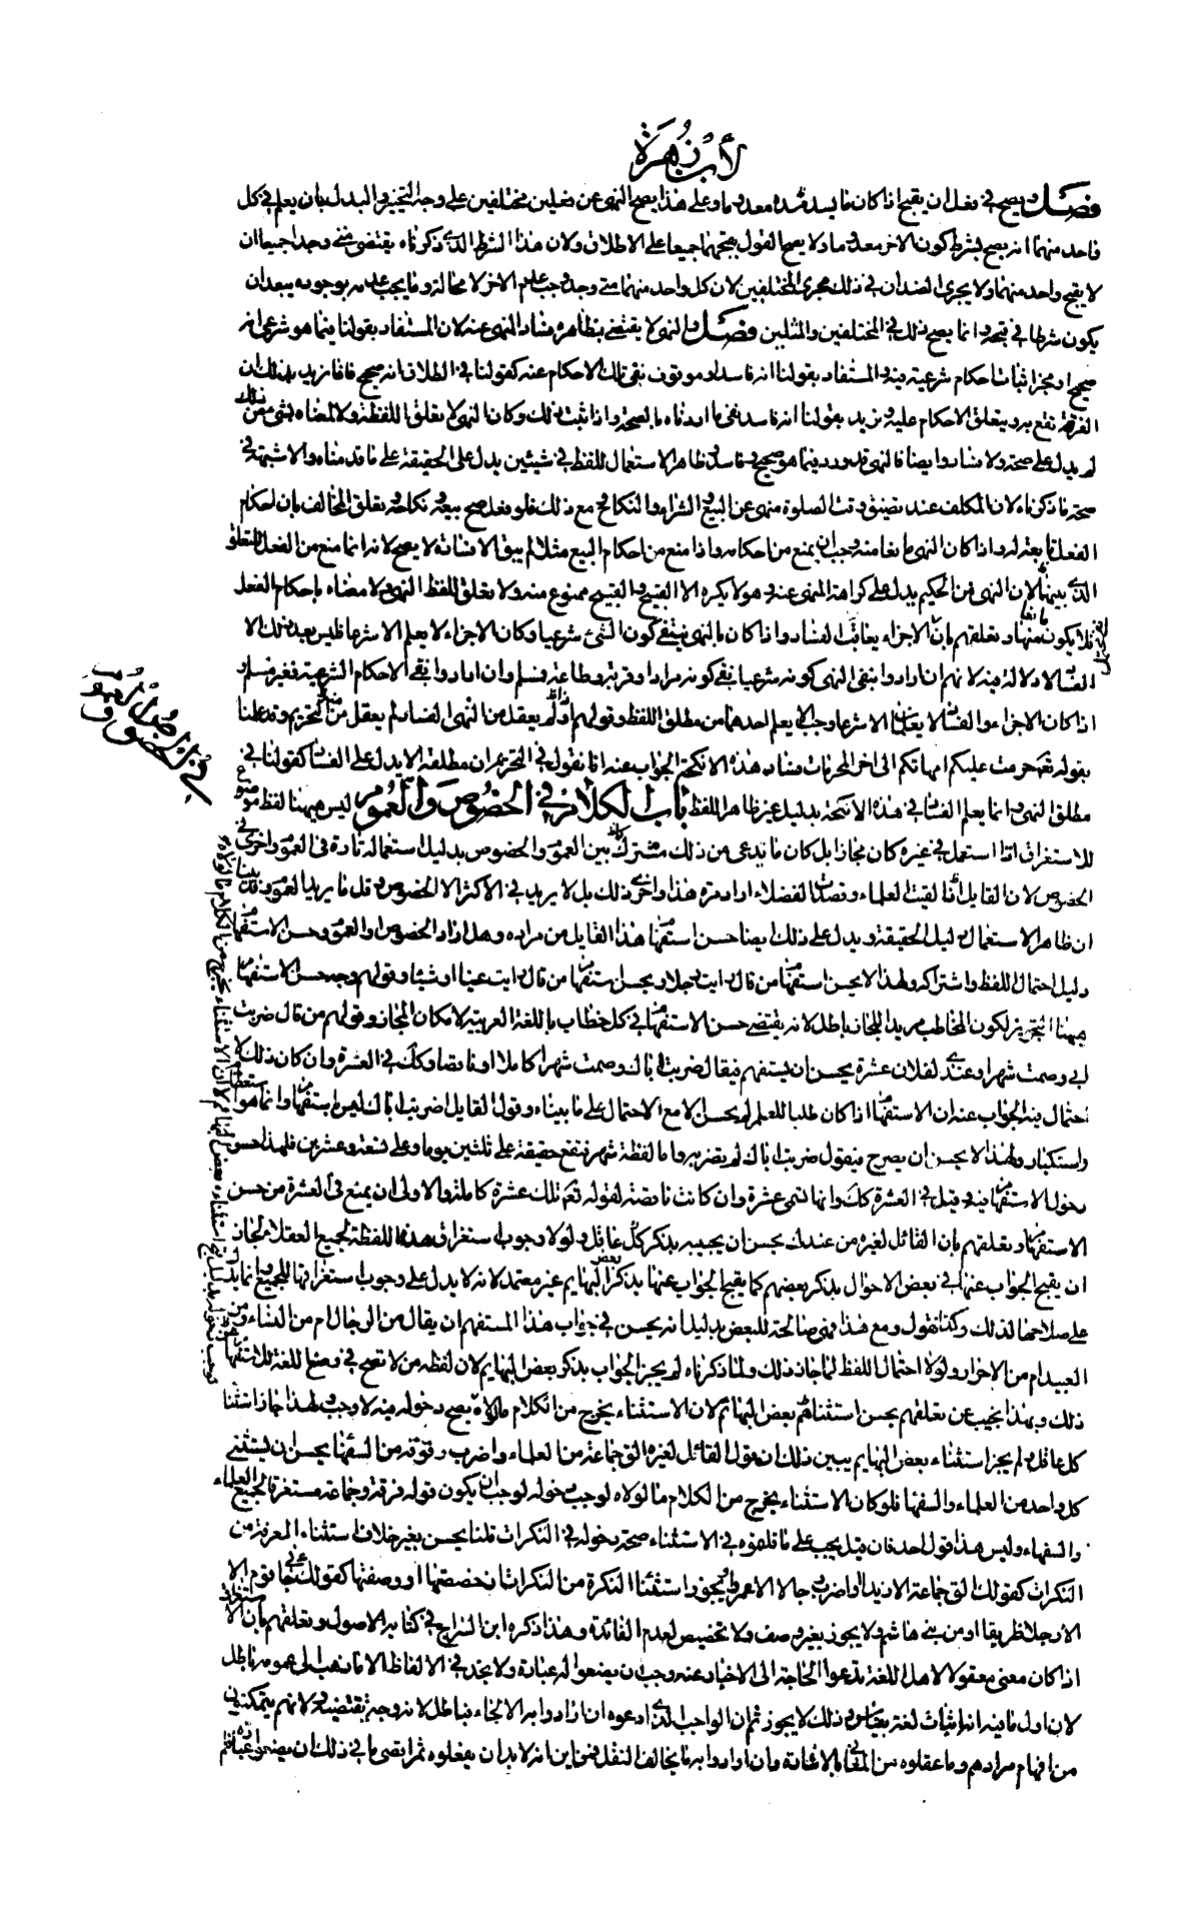 لابن زهرة
فصل ويصح في فعل ان يقبح اذا كان ما يسد مسده معدوما وعلى هذا يصح النهى عن فعلين مختلفين على وجه التخيير والبدل بان يعلم في كل
واحد منهما انه يصح بشرط كون الاخر معدوما ولا يصح القول بقبحهما جميعا على الاطلاق ولان هذا الشرط الذى ذكرناه يقتضى متى وجدا جميعا ان
لا يقبح واحد منهما ولا يجرى الضدان في ذلك مجرى المختلفين لان كل واحد منهما متى وجد وجب عدم الاخر لا محالة وما يجب عدمه بوجوده يبعد ان
يكون شرطا في قبحه وانما يصح ذلك في المختلفين والمثلين فصل والنهى لا يقتضى بظاهره فساد المنهى عنه لان المستفاد بقولنا فيما هو شرعى انه
صحيح او مجز اثبات احكام شرعية فيه والمستفاد بقولنا انه فاسد او موقوف نفى تلك الاحكام عنه كقولنا في الطلاق انه صحيح فانا نريد بذلك ان
الفرقة تقع به ويتعلق الاحكام عليه ونريد بقولنا انه فاسد نفى ما اردناه بالصحة واذا ثبت ذلك وكان النهى لا يعلق للفظه ولا لمعناه بشئ من ذلك
لم يدل على صحة ولا فساد وايضا فالنهى قد ورد فيما هو صحيح وفاسد وظاهر الاستعمال للفظ في شيئين يدل على الحقيقة على ما قدمناه ولا شبهة في
صحة ما ذكرناه لان المكلف عند تضيق وقت الصلوة منهى عن البيع والشراء والنكاح مع ذلك فلو فعل صح بيعه ونكاحه وتعلق المخالف بان احكام
الفعل تابعة له واذا كان النهى مانعا منه وجب ان يمنع من احكامه واذا منع من احكام البيع مثلا لم يبق الا فساده لا يصح لانه انما منع من الفعل للتعلق
الذى بينهما لان النهى من الحكيم يدل على كراهة المنهى عنه وهو لا يكره الا القبيح والقبيح ممنوع منه ولا تعلق للفظ النهى ولا معناه باحكام الفعل
فلا يكون مانعا منها وتعلقهم بان الاجزاء يعاقب الفساد واذا كان بالنهى ينتفى كون الشئ شرعيا وكان الاجزاء لا يعلم الا شرعا فليس بعد ذلك الا
الفساد لا دلالة فيه لانهم ان ارادوا بنفى النهى كونه شرعيا نفى كونه مرادا وقربة وطاعة فمسلم وان ارادوا نفى الاحكام الشرعية فغير مسلم و
اذا كان الاجزاء والفساد لا يعلمان الا شرعا وجب الا يعلم احدهما من مطلق اللفظ وقولهم اذا لم يعقل من النهى الفساد لم يعقل من التحريم وقد علمنا
بقوله تعالى حرمت عليكم امهاتكم الى اخر المحرمات فساد هذه الانكحة الجواب عنه انا نقول في التحريم ان مطلقه لا يدل على الفساد كقولنا في
مطلق النهى وانما يعلم الفساد في هذه الانكحة بدليل غير ظاهر اللفظ باب الكلام في الخصوص والعموم ليس هيهنا لفظ موضوع
للاستغراق اذا استعمل في غيره كان مجازا بل كان ما يدعى من ذلك مشترك بين العموم والخصوص بدليل استعماله تارة في العموم واخرى في
الخصوص لان القايل اذا قال لقيت العلماء وقصدت الفضلاء اراد مرة هذا واخرى ذلك بل لا يريد في الاكثر الا الخصوص وقل ما يريد العموم وقد بينا
ان ظاهر الاستعمال دليل الحقيقة ويدل على ذلك ايضا حسن استفهام هذا القايل من مراده وهل اراد الخصوص او العموم وحسن الاستفهام
دليل احتمال اللفظ واشتراكه ولهذا لا يحسن استفهام من قال رايت رجلا ويحسن استفهام من قال رايت عينا او شيئا وقولهم وجه حسن الاستفهام
هيهنا التجويز لكون المخاطب مريدا للمجاز باطل لانه يقتضى حسن الاستفهام في كل خطاب باللغة العربية لامكان المجاز وقولهم من قال ضربت
ابى وصمت شهرا وعندى لفلان عشرة يحسن ان يستفهم فيقال ضربت اباك وصمت شهرا كاملا او ناقصا وكك في العشرة وان كان ذلك لا
احتمال فيه الجواب عنه ان الاستفهام اذا كان طلبا للعلم لم يحسن الا مع الاحتمال على ما بيناه وقول القايل اضربت اباك ليس باستفهام وانما هو استعظام
واستكبار ولهذا لا يحسن ان يصرح فيقول ضربت اباك او لم تضربه واما لفظة شهر فتقع حقيقة على ثلثين يوما وعلى تسعة وعشرين فلهذا حسن
دخول الاستفهام فيه وقيل في العشرة كك وانها تسمى عشرة وان كانت ناقصة لقوله تعالى تلك عشرة كاملة والاولى ان يمنع في العشرة من حسن
الاستفهام وتعلقهم بان القائل لغيره من عندك يحسن ان يجيبه بذكر كل عاقل ولولا وجوب استغراق هذه اللفظة لجميع العقلاء لجاز
ان يقبح الجواب عنها في بعض الاحوال بذكر بعضهم كما يقبح الجواب عنها بذكر بعض البهايم غير معتمد لانه لا يدل على وجوب استغراقها للجميع وانما يدل
على صلاحها لذلك وكذا نقول ومع هذا فهى صالحة للبعض بدليل انه يحسن في جواب هذا المستفهم ان يقال من الرجال ام من النساء ومن
العبيد ام من الاحرار ولولا احتمال اللفظ لما جاز ذلك ولما ذكرناه لم يجز الجواب بذكر بعض البهايم لان لفظه من لا تصح في وضع اللغة للاستفهام
ذلك وبهذا نجيب عن تعلقهم بحسن استثناء بعض البهائم لان الاستثناء يخرج من الكلام ما لولاه يصح دخوله فيه لا وجب ولهذا جاز استثناء
كل عاقل ولم يجز استثناء بعض البهايم يبين ذلك ان قول القائل لغيره الق جماعة من العلماء واضرب فرقة من السفهاء يحسن ان يستثنى
كل واحد من العلماء والسفهاء فلو كان الاستثناء يخرج من الكلام ما لولاه لوجب دخوله لوجب ان يكون قوله فرقة وجماعة مستغرقا لجميع العلماء
والسفهاء وليس هذا قول احد فان قيل يجب على ما قلتموه في الاستثناء صحة دخوله في النكرات قلنا يحسن بغير خلاف استثناء المعرفة من
النكرات كقولك الق جماعة الا زيدا واضرب رجالا الا عمرا ويجوز استثناء النكرة من النكرات ان خصصتها او وصفتها كقولك جاءنى قوم الا
الا رجلا ظريفا او من بنى هاشم ولا يجوز بغير وصف ولا تخصيص لعدم الفائدة وهذا ذكره ابن السراج في كتابه الاصول وتعلقهم بان الاستغراق
اذا كان معنى معقولا لاهل اللغة تدعوا الحاجة الى الاخبار عنه وجب ان يضعوا له عبارة ولا نجد في الالفاظ الا ما نذهب الى عمومه باطل
لان اول ما فيه انه اثبات لغة بقياس وذلك لا يجوز ثم ان الواجب الذى ادعوه ان ارادوا به الالجاء فباطل لانه لا وجه يقتضيه ولانهم يتمكنون
من افهام مرادهم وما عقلوه من المعانى بالاشارة وان ارادوا به ما يخالف النقل فمن اين انه لا بد ان يفعلوه ثم اقصى ما في ذلك ان يضعوا عبارة